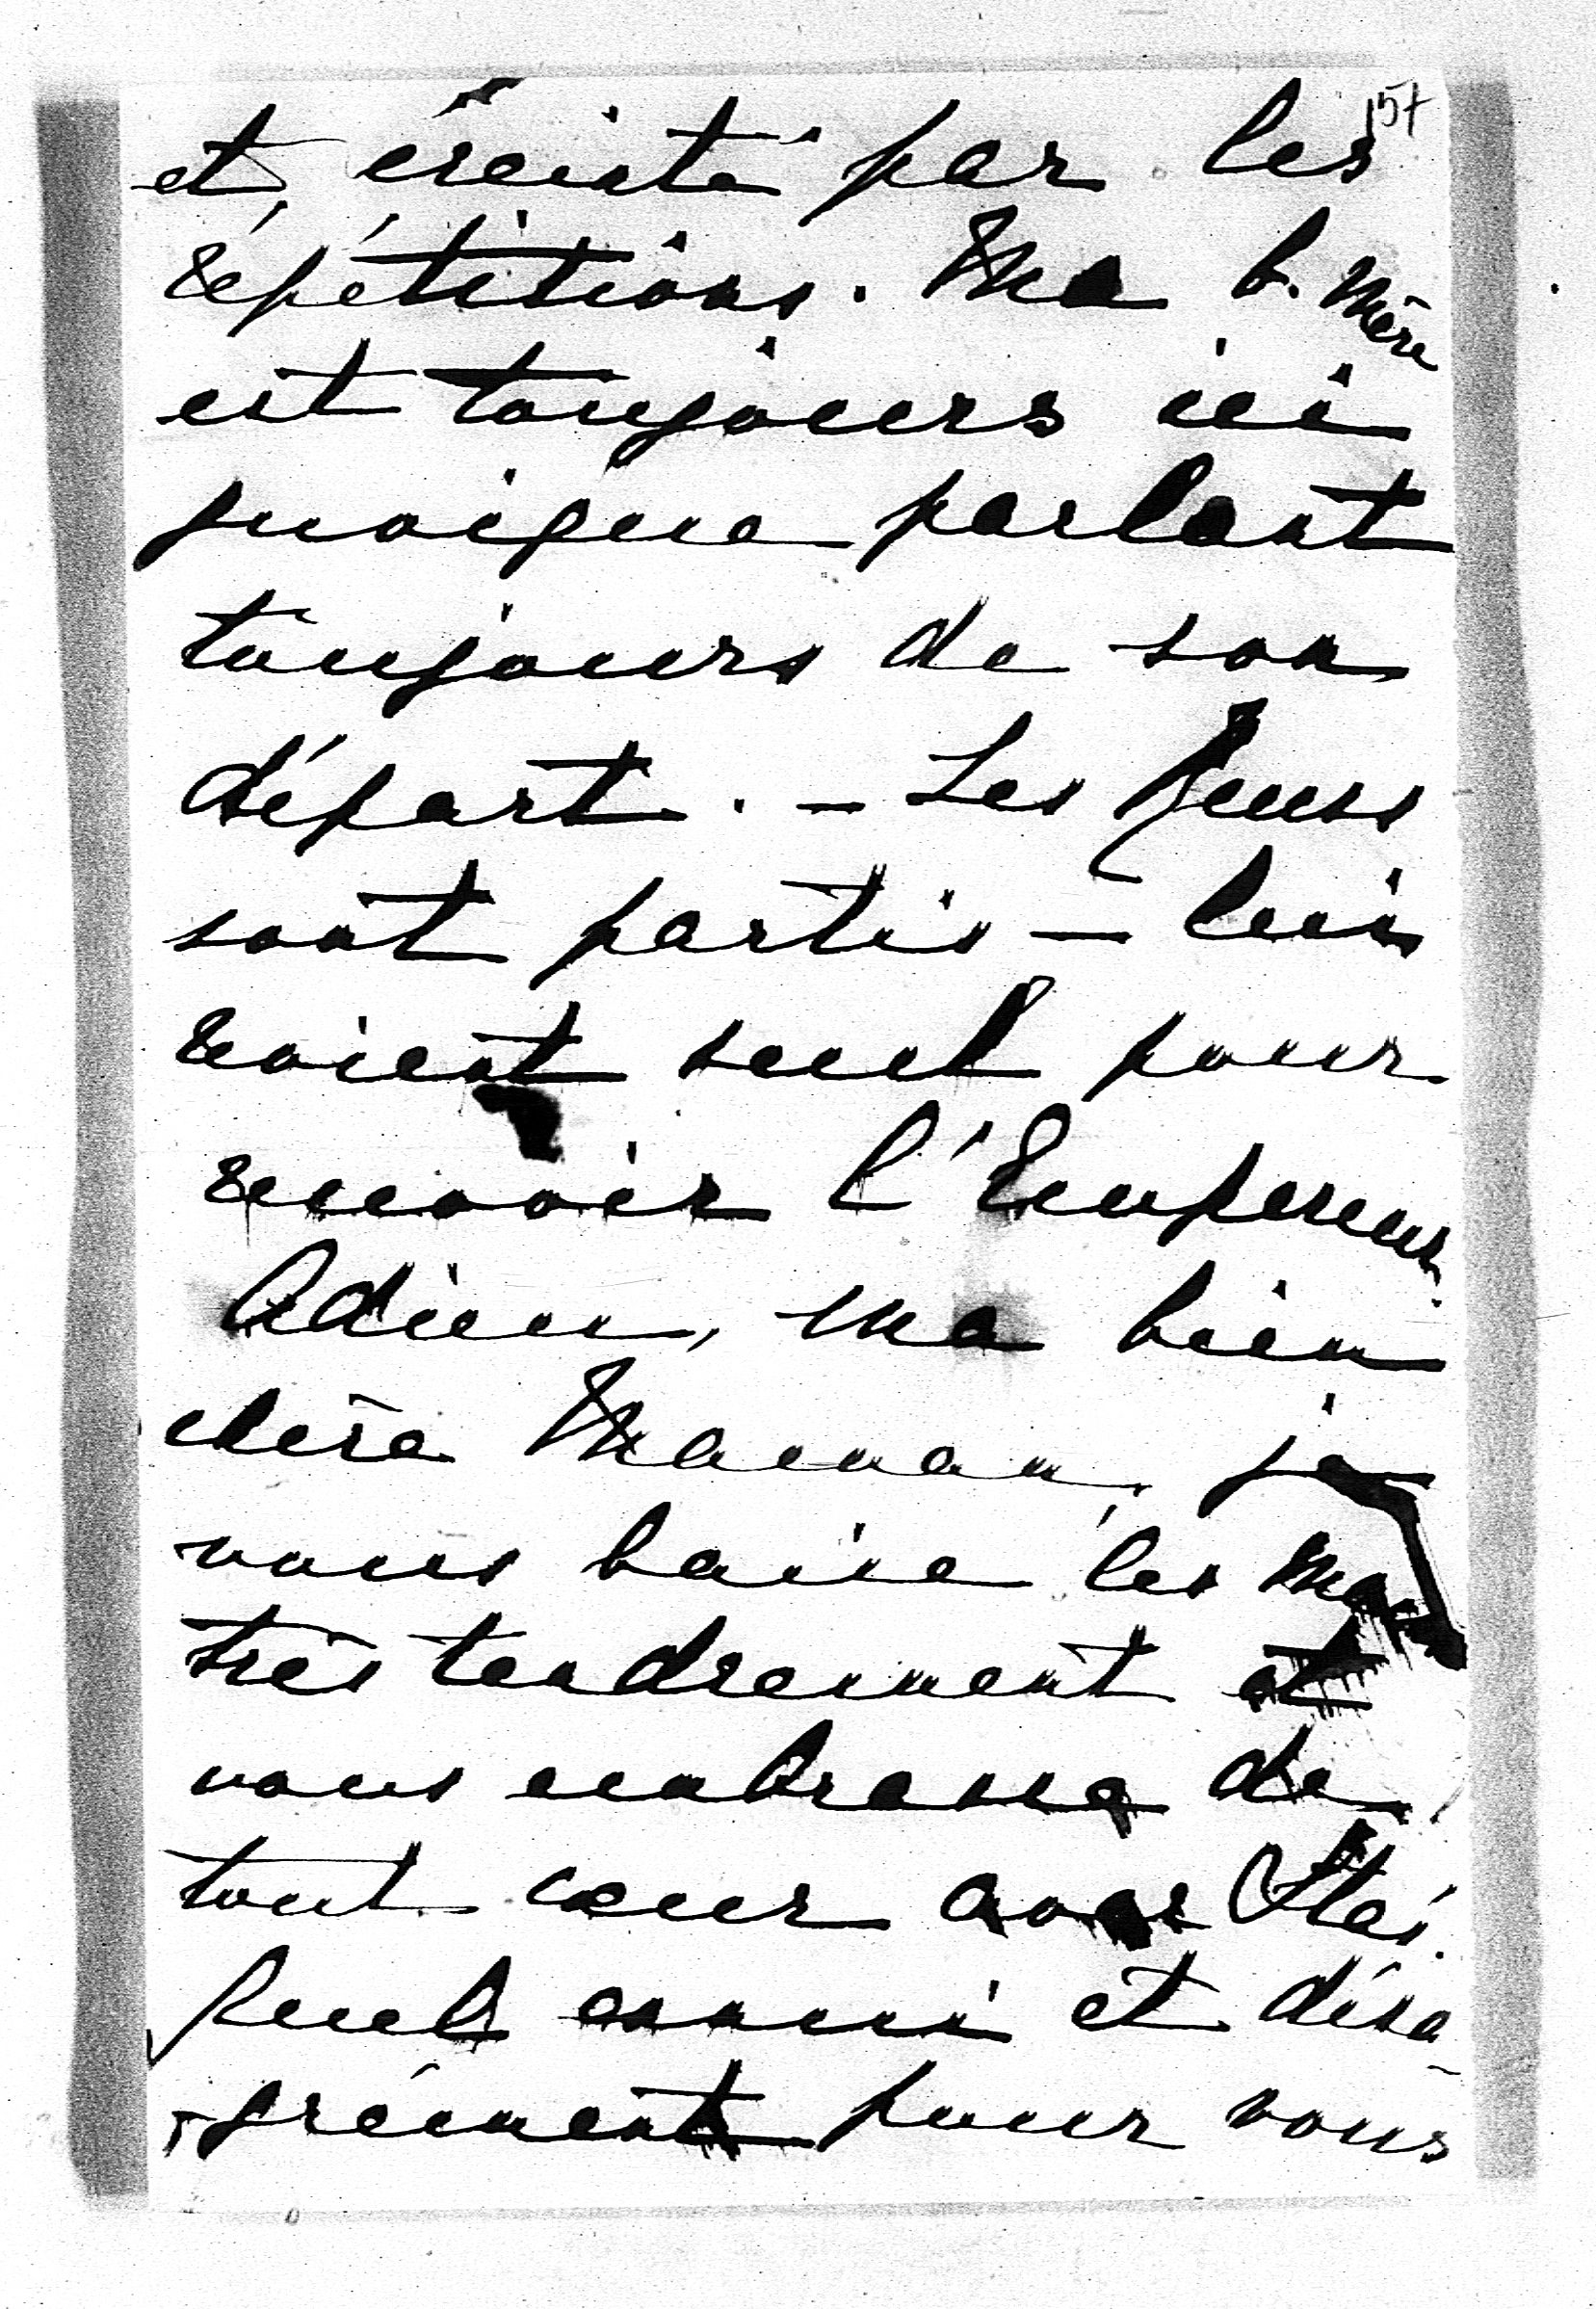 157
et éreinté par les
répétitions. Ma b. Mère
est toujours ici
quoique parlant
toujours de son
départ. – Les
sont partis – lui
revient seul pour
revoir l'Empereur.
Adieu, ma bien
chère Maman, je
vous baise les
très tendrement et
vous embrasse de
tout cœur avec
Quel ennui et désa-
grément pour vous